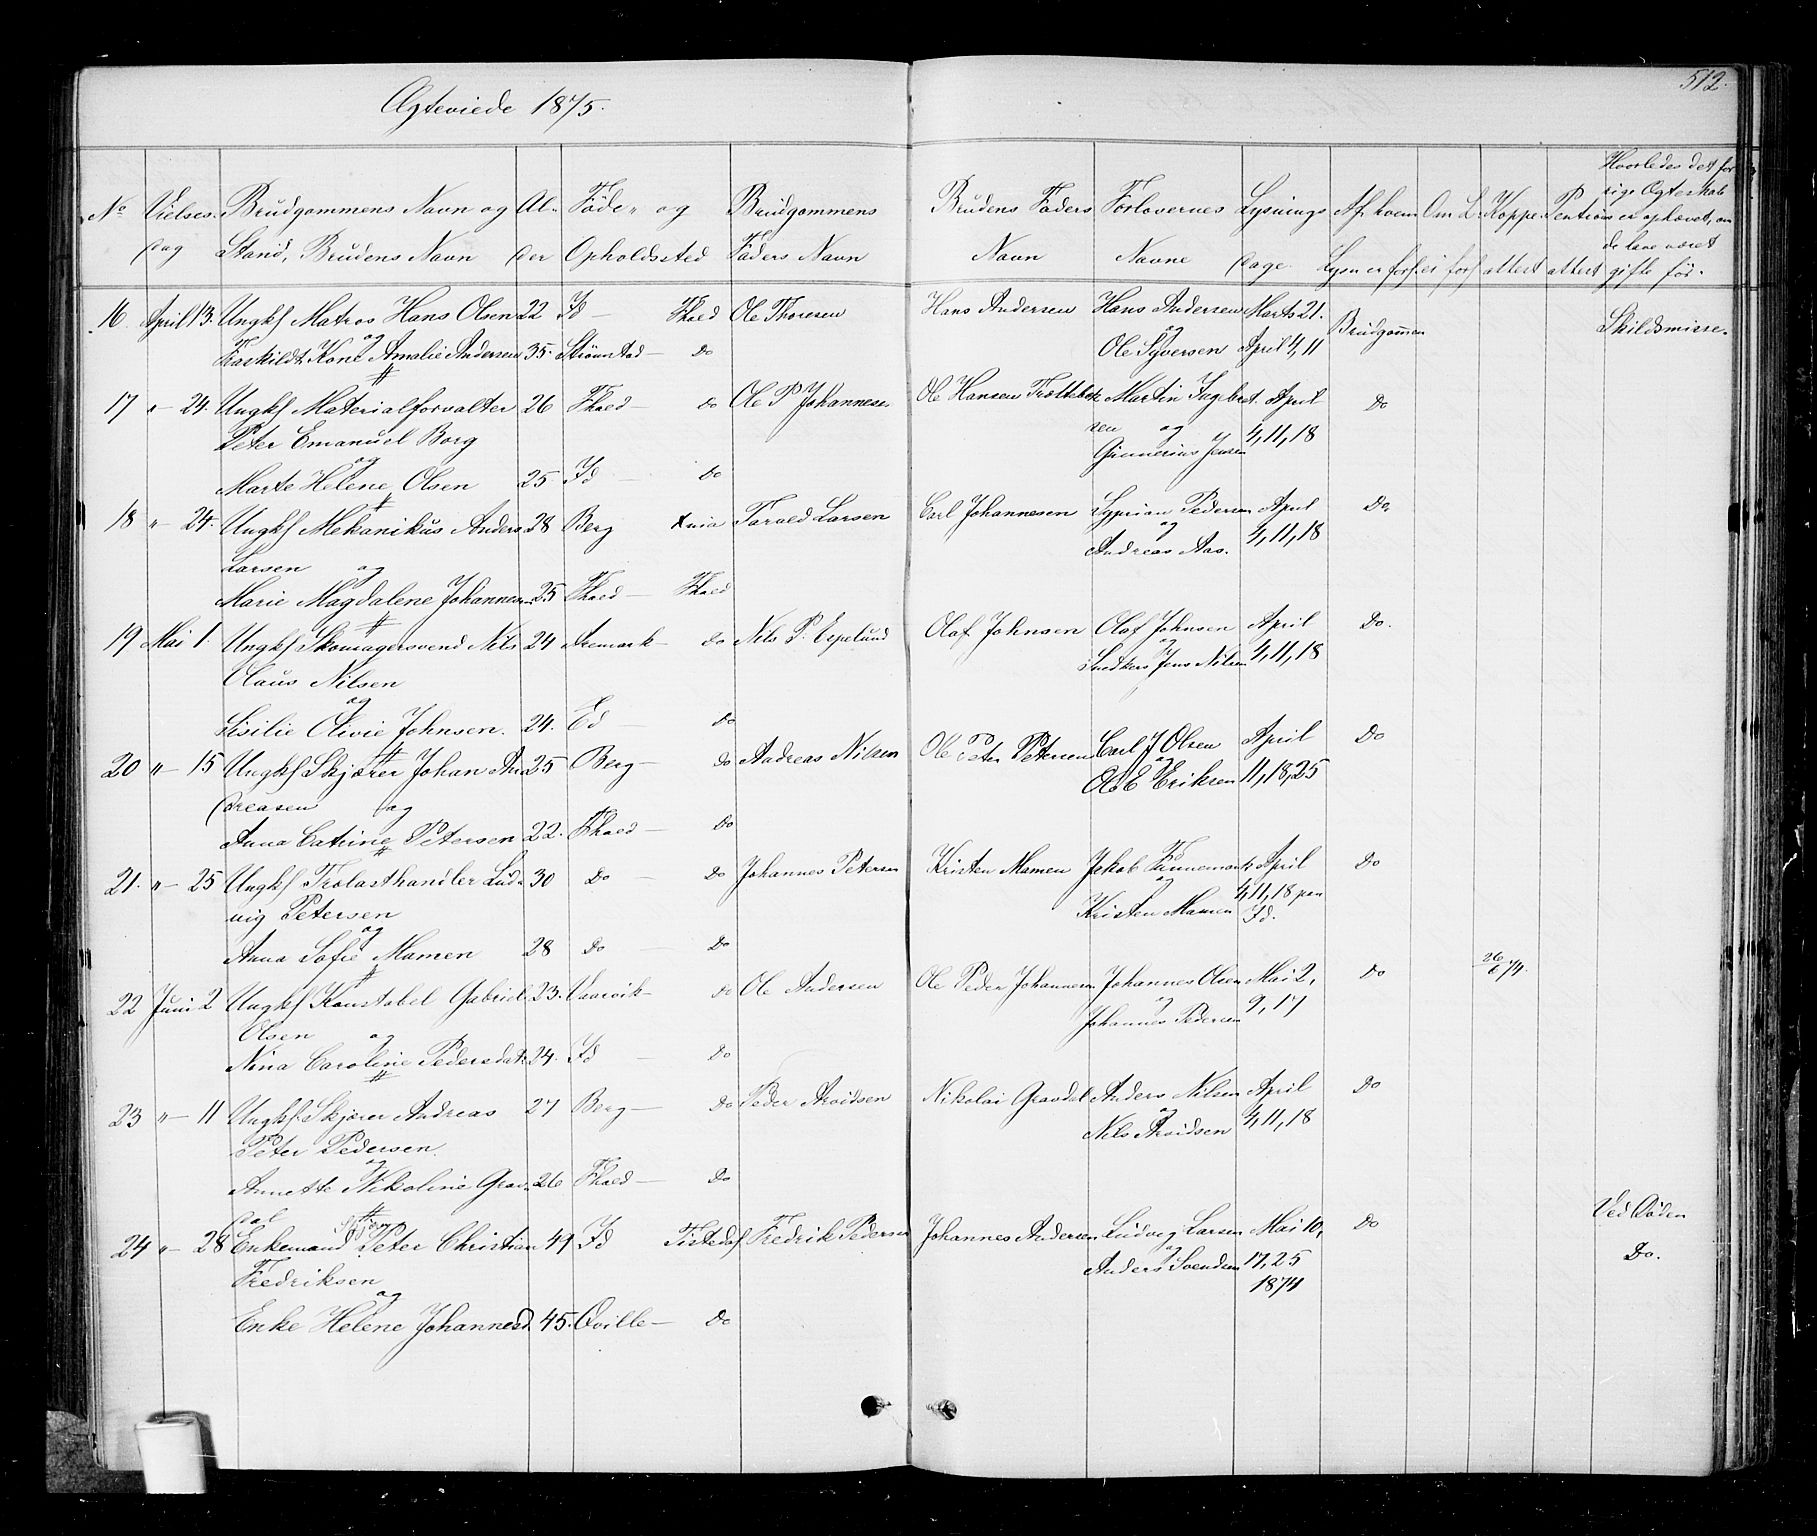 512.
Ægteviede 1875.
No Vielses- Brudgommens Navn og Al- Føde- og Brudgommens Brudens Faders Forlovernes Lysnings Af hvem Om L. Koppe- Hvorledes det for
dag Stand, Brudens Navn der Opholdssted Faders Navn Navn Navne dage Lysn er forl. ei forl attest attest
rige Ægteskab
er ophævet, om
de have været
gifte før.
16 April 13. Ungkf Matros Hans Olsen 22 Id — Fhald Ole Thoresen Hans Andersen Hans Andersen Marts 21. Brudgommen Skildsmisse.
og og
Fraskildt Kone Amalie Andersen 35. Strømstad — Do Ole Syversen April 4, 11
17 " – 24. Ungkf Materialforvalter 26 Fhald — Do Ole P Johannesen Ole Hansen Trøttebek Martin Ingebret- April Do
Peter Emanuel Borg sen og 4, 11, 18
og Gunnerius Jensen
Marte Helene Olsen 25 Id — Do
18 " – 24. Ungkf Mekanikus Anders 28 Berg Xnia Tarald Larsen Carl Johannesen Syprian Pedersen April Do.
Larsen og og Andreas Aas. 4, 11, 18
Marie Magdalene Johannesen 25 Fhald — Fhald
19 Mai 1. Ungkf Skomagersvend Nils 24 Aremark — Do Nils P. Espelund Olaf Johnsen Olaf Johnsen April Do.
Claus Nilsen og Snedker Jens Nilsen 4, 11, 18
og
Sisilie Olivie Johnsen. 24. Ed — Do
20 " – 15 Ungkf Skjærer Johan An- 25 Berg — Do Andreas Nilsen Ole Peter Petersen Carl J Olsen April Do
dreasen og og Ole E Eriksen 11, 18, 25
Anna Catrine Petersen 22. Fhald — Do
21. " – 25 Ungkf Trælasthandler Lud- 30 Do — Do Johannes Petersen Kristen Mamen Jakob Finnemark April Do
vig Petersen og 4, 11, 18 paa
og Kristen Mamen Id.
Anna Sofie Mamen 28 Do — Do
22 Juni 2 Ungkf Konstabel Gabriel 23. Vaarvik — Do Ole Andersen Ole Peder Johannesen Johannes Olsen Mai 2, Do 26/6 74.
Olsen og og Johannes Pedersen 9, 17
Nina Caroline Pedersdat. 24. Id — Do
23 " – 11 Ungkf. Skjærer Andreas 27 Berg — Do Peder Arvidsen Nikolai Gravdal Anders Nilsen April Do
Peter Pedersen. og Nils Arvidsen 4, 11, 18
og
Annette Nikoline Grav- 26 Fhald — Do
dal
24 " – 28 Enkemand Peter Christian 49 Id Tistedal Fredrik Pedersen Johannes Andersen Ludvig Larsen Mai 10, Do Ved Døden
Fredriksen og Anders Svendsen 17, 25 Do.
og 1874
Enke Helene Johannesd. 45. Qville — Do